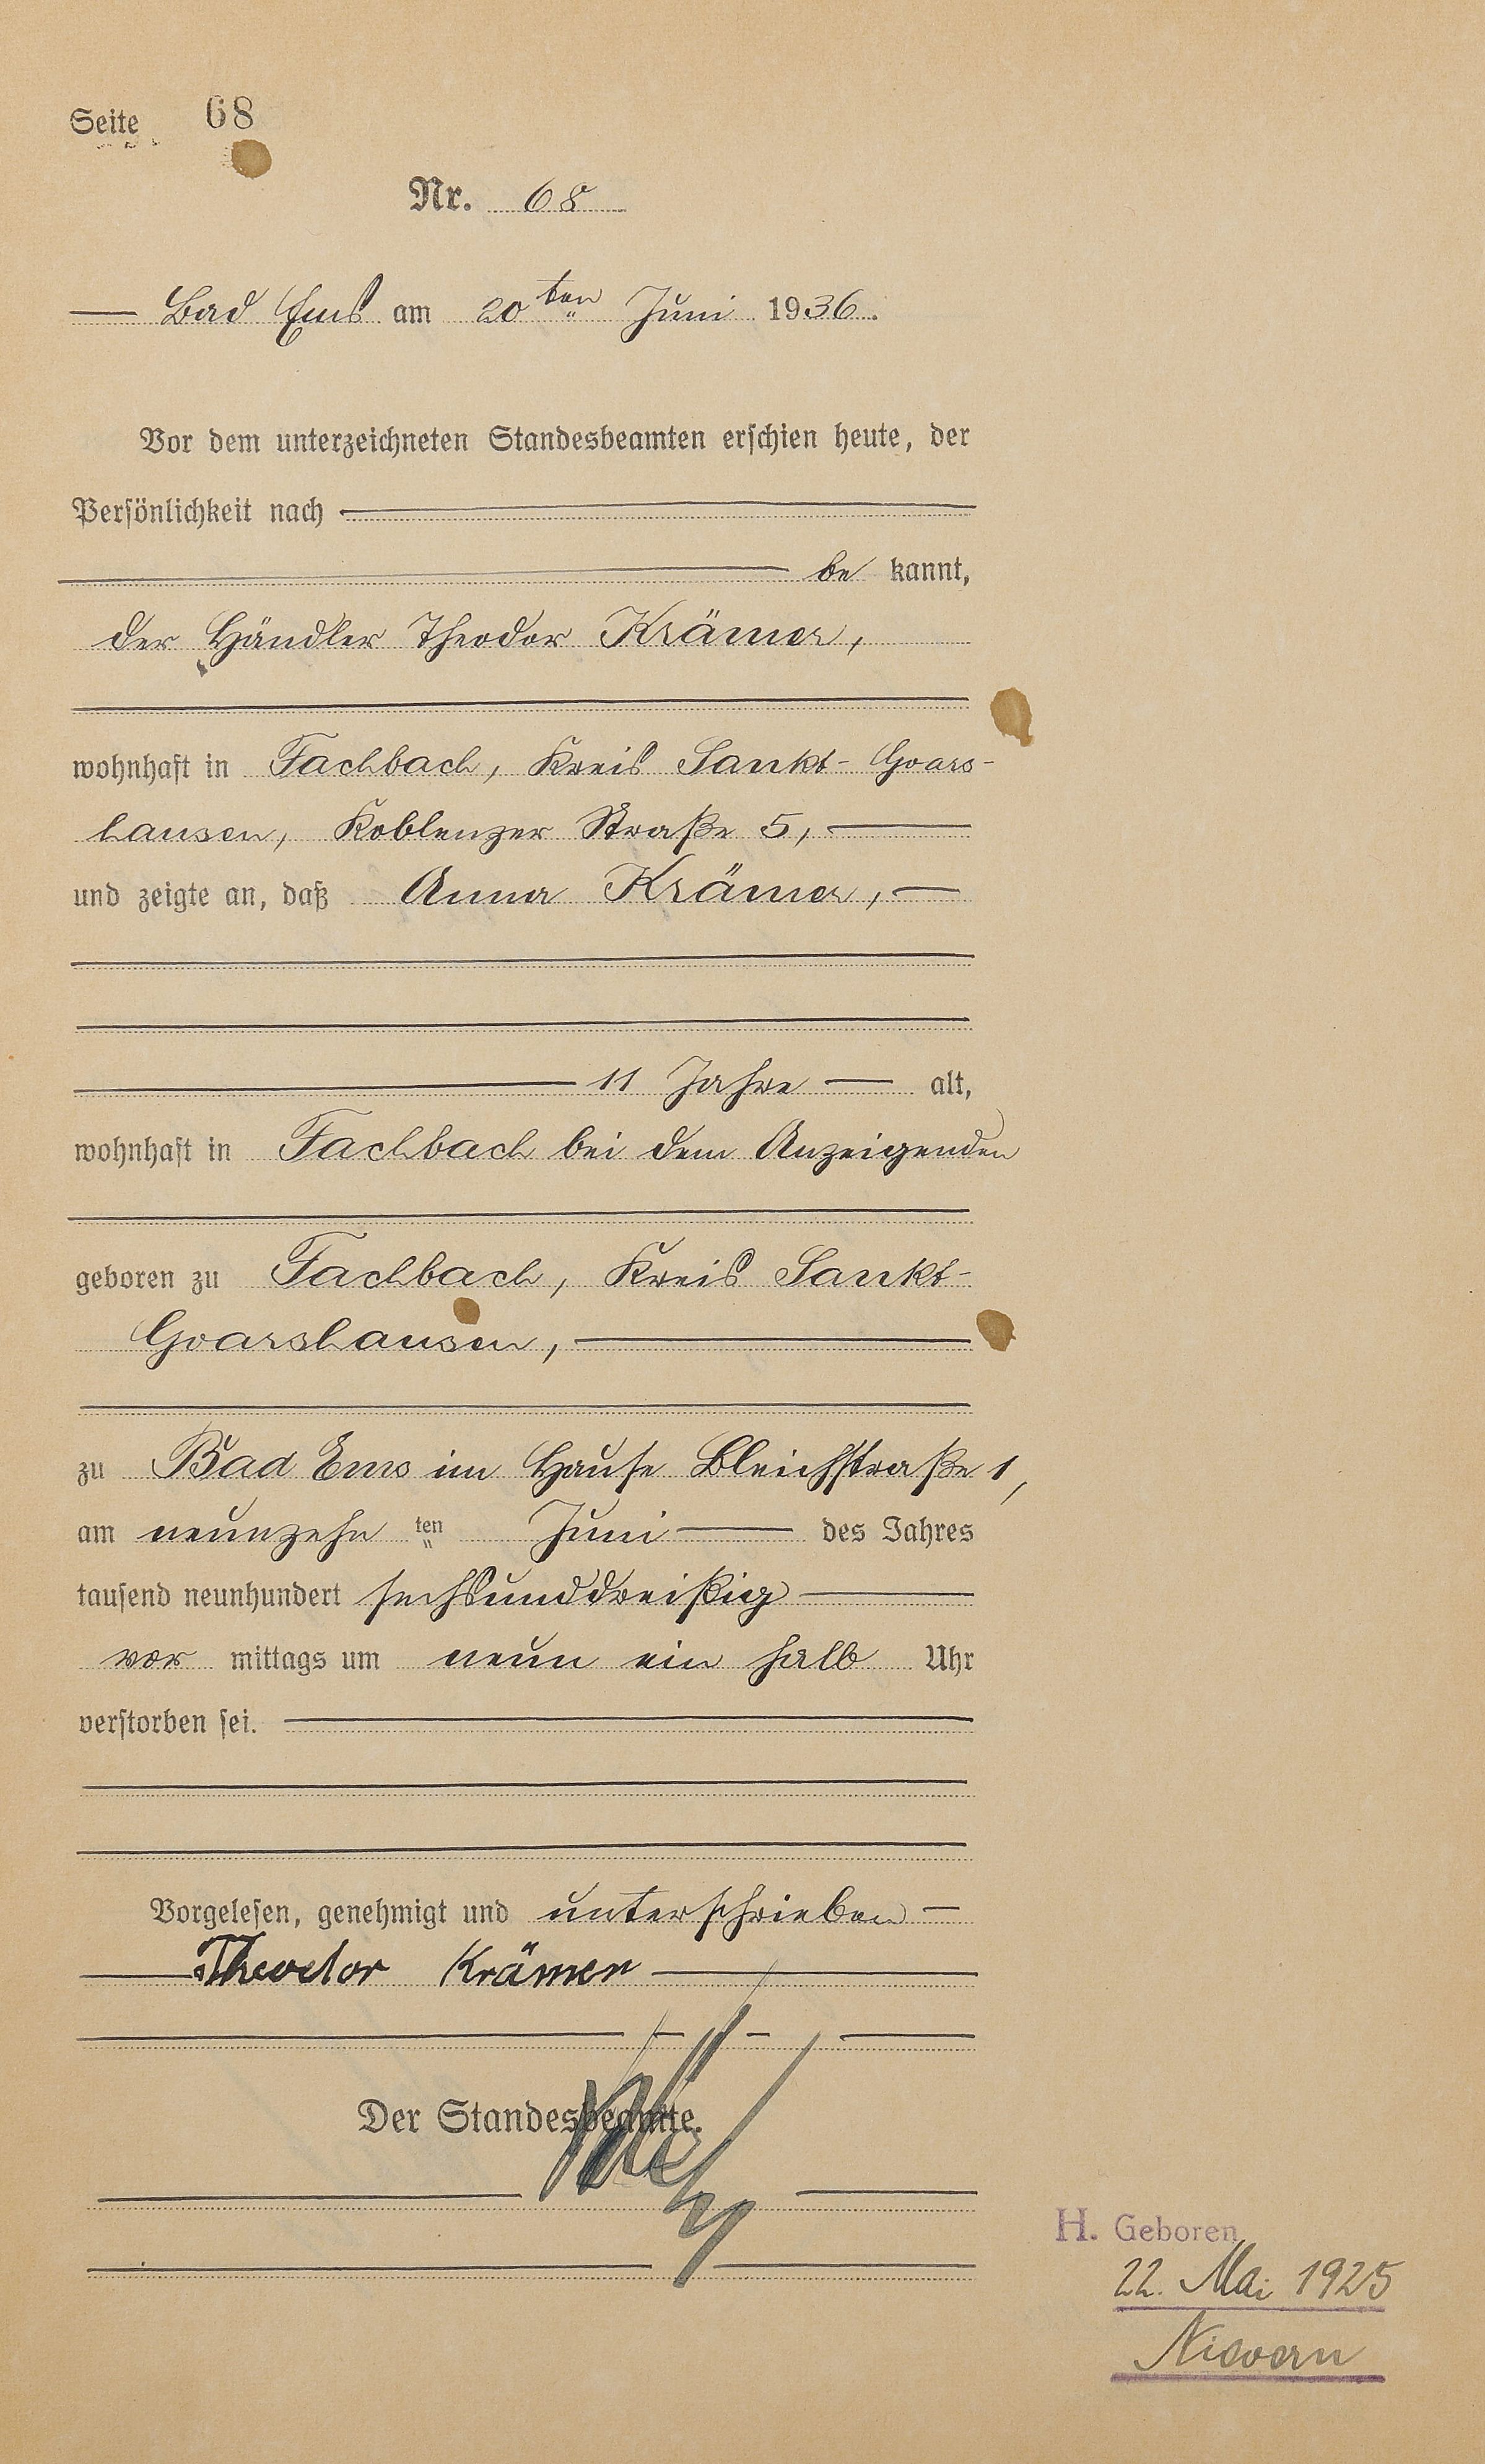 Seite 68
Nr. 68
Bad Ems am 20ten Juni 1936.
Vor dem unterzeichneten Standesbeamten erschien heute, der
Persönlichkeit nach
be kannt,
der Händler Theodor Krämer,
wohnhaft in Fachbach, Kreis Sankt-Goars-
hausen, Koblenzer Straße 5,
und zeigte an, daß Anna Krämer,
11 Jahre alt,
wohnhaft in Fachbach bei dem Anzeigenden
geboren zu Fachbach, Kreis Sankt-
Goarshausen,
zu Bad Ems im Hause Bleichstraße 1,
am neunzehn ten Juni des Jahres
tausend neunhundert sechsunddreißig
vor mittags um neun ein halb Uhr
verstorben sei.
Vorgelesen, genehmigt und unterschrieben
Theodor Krämer
Der Standesbeamte.
H. Geboren
22. Mai 1925
Nievern